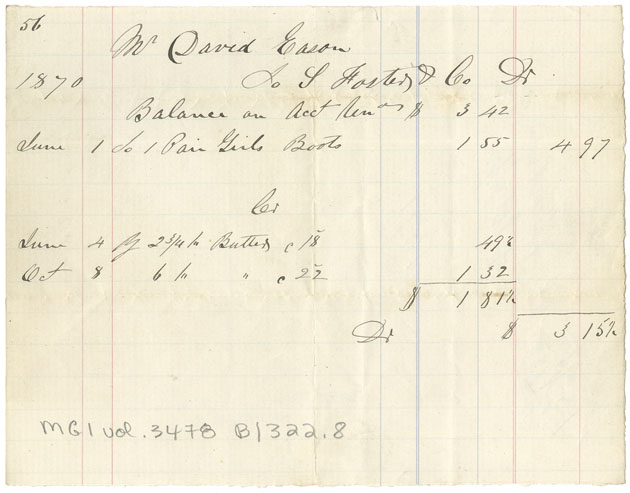 56
Mr David Eason
1870 To S Foster & Co Dr
Balance on Acct $ 3 42
June 1 To 1 Pair Girls Boots 1 55 4 97
Cr
June 4 By 2 3/4 lb Butter @ 18 49½
Oct 8 6 lb " @ 22 1 32
$ 1 81½
Dr $ 3 15½
MG1 vol. 3478 B/322.8